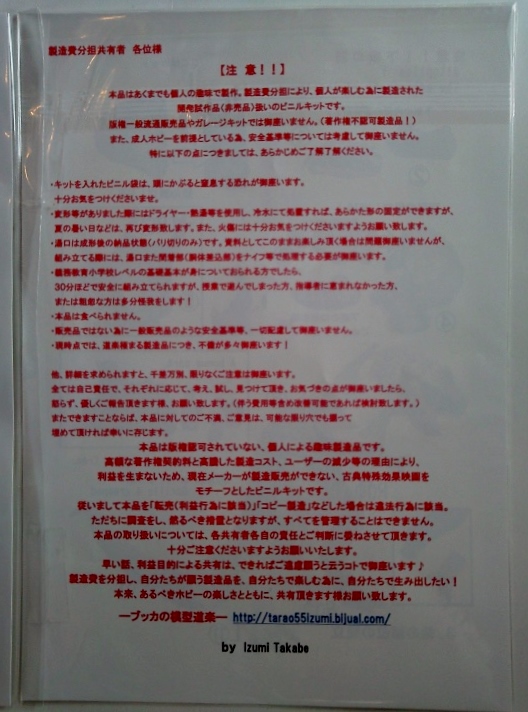 製造費分担共有者 各位様
【注 意!!】
本品はあくまでも個人の趣味で製作。製造費分担により、個人が楽しむ為に製造された
開発試作品(非売品)扱いのビニルキットです。
版権一般流通販売品やガレージキットでは御座いません。(著作権不認可製造品!)
また、成人ホビーを前提としている為、安全基準等については考慮して御座いません。
特に以下の点につきましては、あらかじめご了解了解ください。
・キットを入れたビニル袋は、頭にかぶると窒息する恐れが御座います。
十分お気をつけくださいませ。
・変形等がありました際にはドライヤー・熱湯等を使用し、冷水にて処置すれば、あらかた形の固定ができますが、
夏の暑い日などは、再び変形致します。また、火傷には十分お気をつけくださいますようお願い致します。
・湯口は成形後の納品状態(バリ切りのみ)です。資料としてこのままお楽しみ頂く場合は問題御座いませんが、
組み立てる際には、湯口また関節部(胴体差込部)をナイフ等で処理する必要が御座います。
・義務教育小学校レベルの基礎基本が身についておられる方でしたら、
30分ほどで安全に組み立てられますが、授業で遊んでしまった方、指導者に恵まれなかった方、
または粗忽な方は多分怪我をします!
・本品は食べられません。
・販売品ではない為に一般販売品のような安全基準等、一切配慮して御座いません。
・現時点では、道楽極まる製造品につき、不備が多々御座います!
他、詳細を求められますと、千差万別、限りなくご注意は御座います。
全ては自己責任で、それぞれに応じて、考え、試し、見つけて頂き、お気づきの点が御座いましたら、
怒らず、優しくご報告頂きます様、お願い致します。(伴う費用等含め改善可能であれば検討致します。)
またできますことならば、本品に対してのご不満、ご意見は、可能な限り穴でも掘って
埋めて頂ければ幸いに存じます。
本品は版権認可されていない、個人による趣味製造品です。
高額な著作権契約料と高騰した製造コスト、ユーザーの減少等の理由により、
利益を生まないため、現在メーカーが製造販売ができない、古典特殊効果映画を
モチーフとしたビニルキットです。
従いまして本品を「転売(利益行為に該当)」「コピー製造」などした場合は違法行為に該当。
ただちに調査をし、然るべき措置となりますが、すべてを管理することはできません。
本品の取り扱いについては、各共有者各自の責任とご判断に委ねさせて頂きます。
十分ご注意くださいますようお願いいたします。
早い話、利益目的による共有は、できればご遠慮願うと云うコトで御座います♪
製造費を分担し、自分たちが願う製造品を、自分たちで楽しむ為に、自分たちで生み出したい!
本来、あるべきホビーの楽しさとともに、共有頂きます様お願い致します。
―ブッカの模型道楽― http://tarao55izumi.bijual.com/
by Izumi Takabe